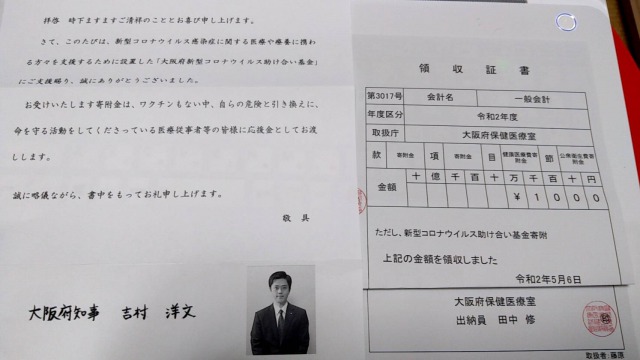 拝啓 時下ますますご清祥のこととお喜び申し上げます。
さて、このたびは、新型コロナウイルス感染症に関する医療や療養に携わ
る方々を支援するために設置した「大阪府新型コロナウイルス助け合い基金」
にご支援賜り、誠にありがとうございました。
お受けいたします寄附金は、ワクチンもない中、自らの危険と引き換えに、
命を守る活動をしてくださっている医療従事者等の皆様に応援金としてお渡
しします。
誠に略儀ながら、書中をもってお礼申し上げます。
敬具
大阪府知事 吉村 洋文
領収証書
第3017号 会計名 一般会計
年度区分 令和2年度
取扱庁 大阪府保健医療室
款 寄附金 項 寄附金 目 健康医療費寄附金 節 公衆衛生費寄附金
金額 十 億 千 百 十 万 千 百 十 円
¥ 1 0 0 0
ただし、新型コロナウイルス助け合い基金寄附
上記の金額を領収しました
令和2年5月6日
大阪府保健医療室
出納員 田中 修
取扱者:藤原